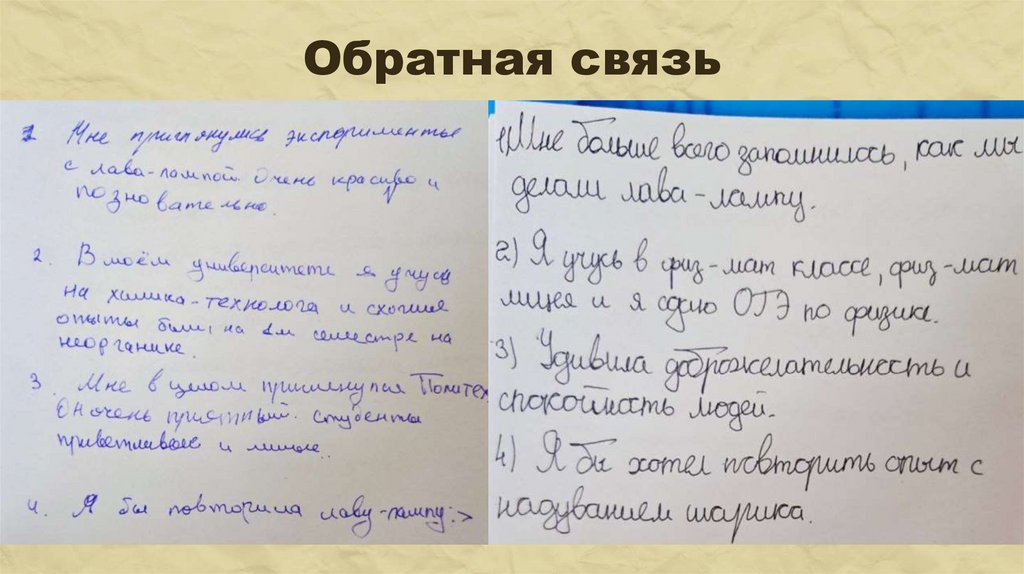 Обратная связь
1 Мне приглянулись эксперименты
с лава-лампой. Очень красиво и
познавательно.
2. В моём университете я учусь
на химика-технолога и схожие
опыты были на 1м семестре на
неорганике.
3. Мне в целом приглянулся Политех
Он очень приятный. Студенты
приветливые и милые..
4. Я бы повторила лаву-лампу:>
1) Мне больше всего запомнилось, как мы
делали лава-лампу.
2) Я учусь в физ-мат классе, физ-мат
лицея и я сдаю ОГЭ по физике.
3) Удивила доброжелательность и
спокойность людей.
4) Я бы хотел повторить опыт с
надуванием шарика.